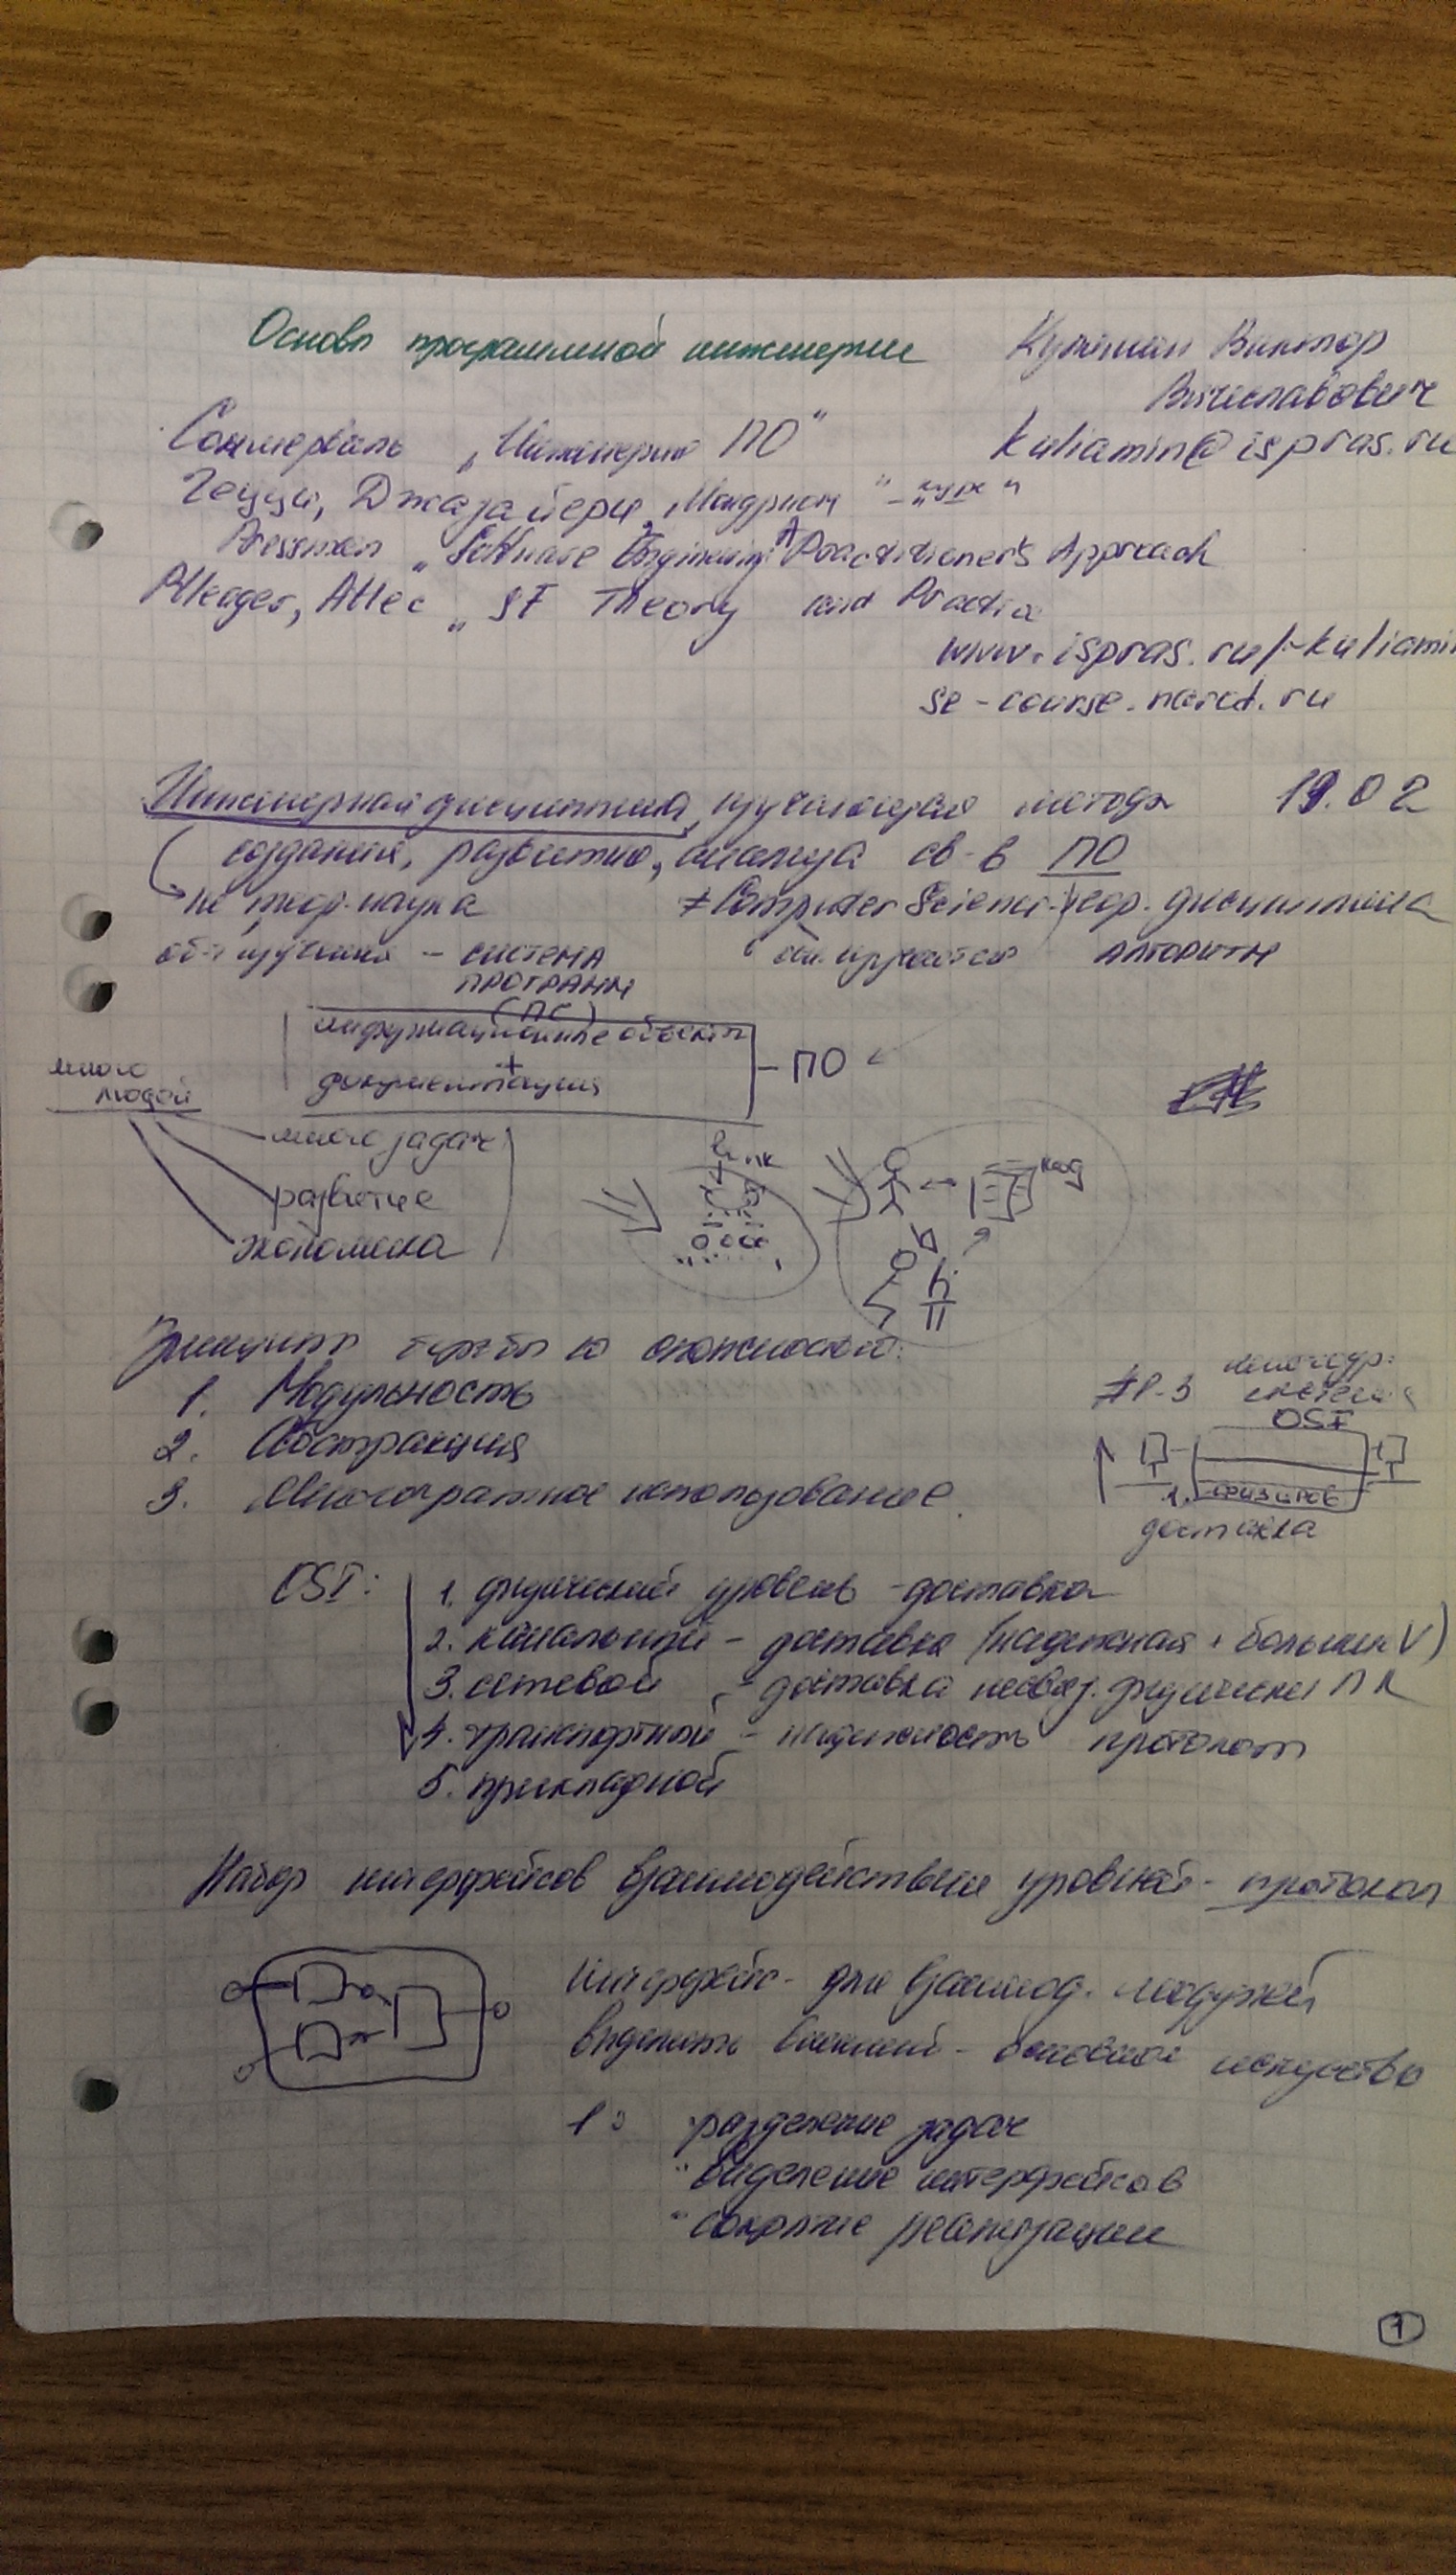 Основы программной инженерии
Кулямин Виктор
Вячеславович
kuliamin@ispras.ru
Соммервиль "Инженерия ПО"
Гецци, Джазайери, Мандриоли
"Software Engineering A Practitioner's Approach
"SE Theory and Practice
www.ispras.ru/~kuliamin
se-course.narod.ru
19.02
Инженерная дисциплина, изучающая методы
создания, развития, анализа св-в ПО
не теор. наука
≠ Computer Science теор. дисциплина
изучения - СИСТЕМА
ПРОГРАММ
(ПС)
изучаются АЛГОРИТМЫ
информационные объекты
+
документация
- ПО
много
людей
много задач
развитие
экономика
код
Принципы борьбы со сложностью:
1. Модульность
2. Абстракция
3. Многократное использование.
система
OSI
1.
доставка
OSI:
1. физический уровень - доставка
2. канальный - доставка (надежная + больший V)
3. сетевой - доставка физически ПК
4. транспортный - надежность
5. прикладной
Набор интерфейсов взаимодействия уровней - протокол
Интерфейс - для взаимод. модулей
выделить искусство
1: разделение задач
" выделение интерфейсов
" сокрытие реализации
1